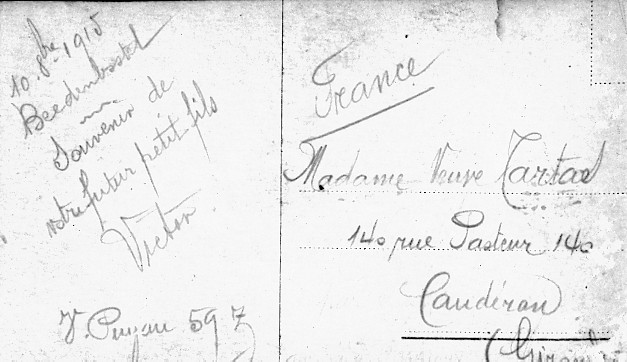 10 9bre 1915
Beedenbostel
Souvenir de
votre futur petit fils
Victor
V. Puyau 59 Z
France
Madame Veuve Tartas
140 rue Pasteur 140
Caudéran
(Gironde